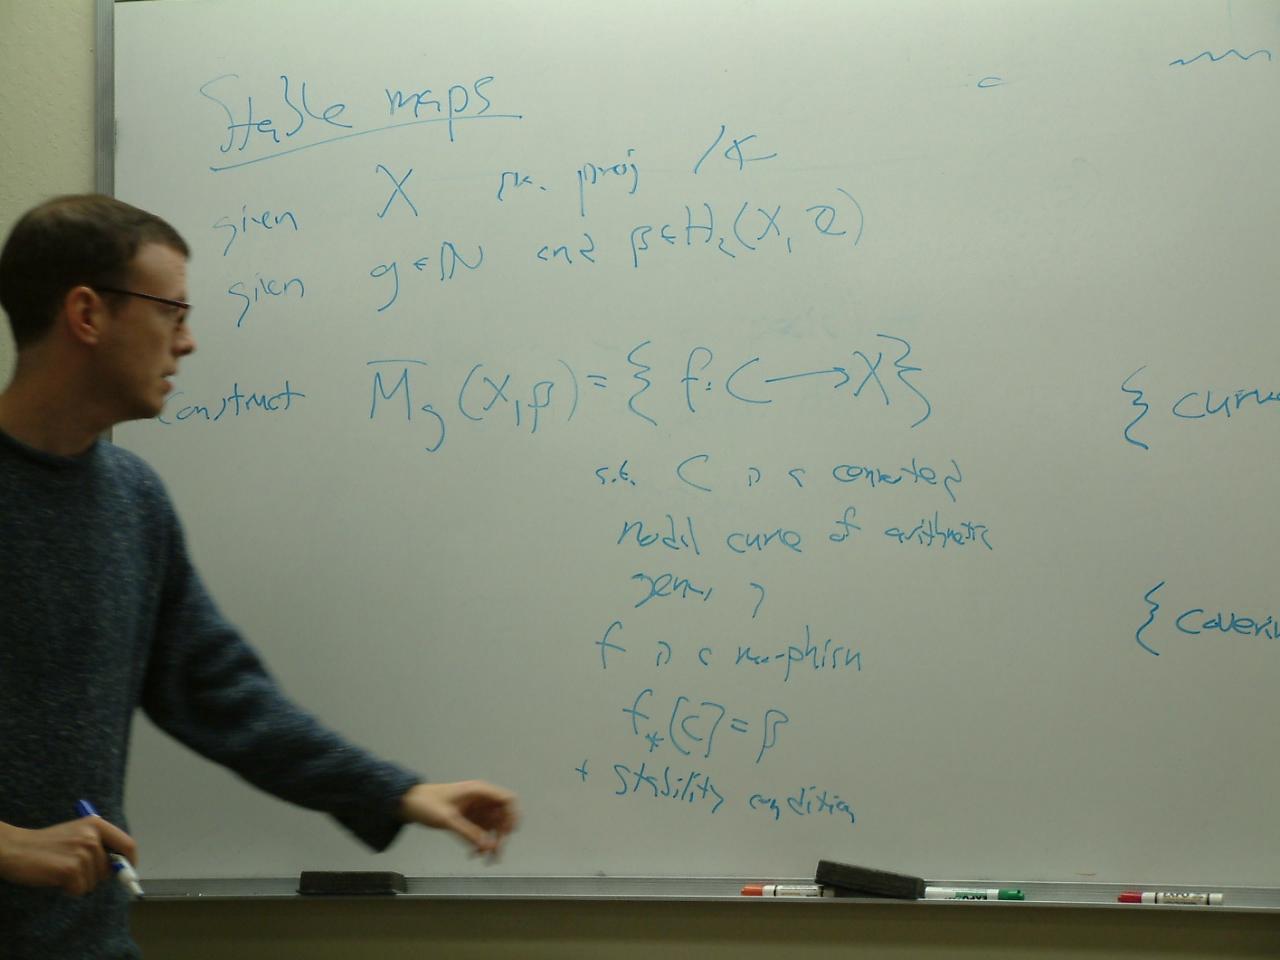 Stable maps
given X sm. proj /C
given g ∈ N and β ∈ H₂(X, Z)
construct M̅_g (X, β) = { f: C → X }
s.t. C is a connected
nodal curve of arithmetic
genus g
f is a morphism
f_* [C] = β
+ stability condition
{ curve
{ coverin